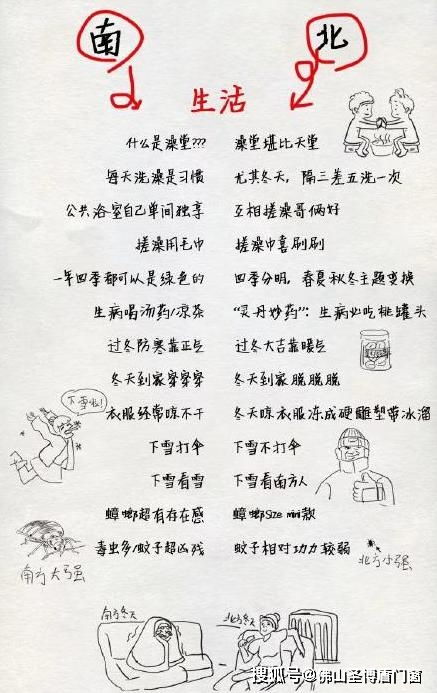 南 北
生活
什么是澡堂??? 澡堂堪比天堂
每天洗澡是习惯 尤其冬天，隔三差五洗一次
公共浴室自己单间独享 互相搓澡哥俩好
搓澡用毛巾 搓澡巾喜刷刷
一年四季都可以是绿色的 四季分明，春夏秋冬主题变换
生病喝汤药/凉茶 “灵丹妙药”：生病必吃桃罐头
过冬防寒靠正气 过冬大吉靠暖气
冬天到家穿穿穿 冬天到家脱脱脱
下雪啦!
衣服经常晾不干 冬天晾衣服冻成硬雕塑带冰溜
下雪打伞 下雪不打伞
下雪看雪 下雪看南方人
蟑螂超有存在感 蟑螂Size mini款
毒虫多/蚊子超凶残 蚊子相对功力较弱
南方大强 北方小强
南方冬天 北方冬天
搜狐号@佛山圣博盾门窗